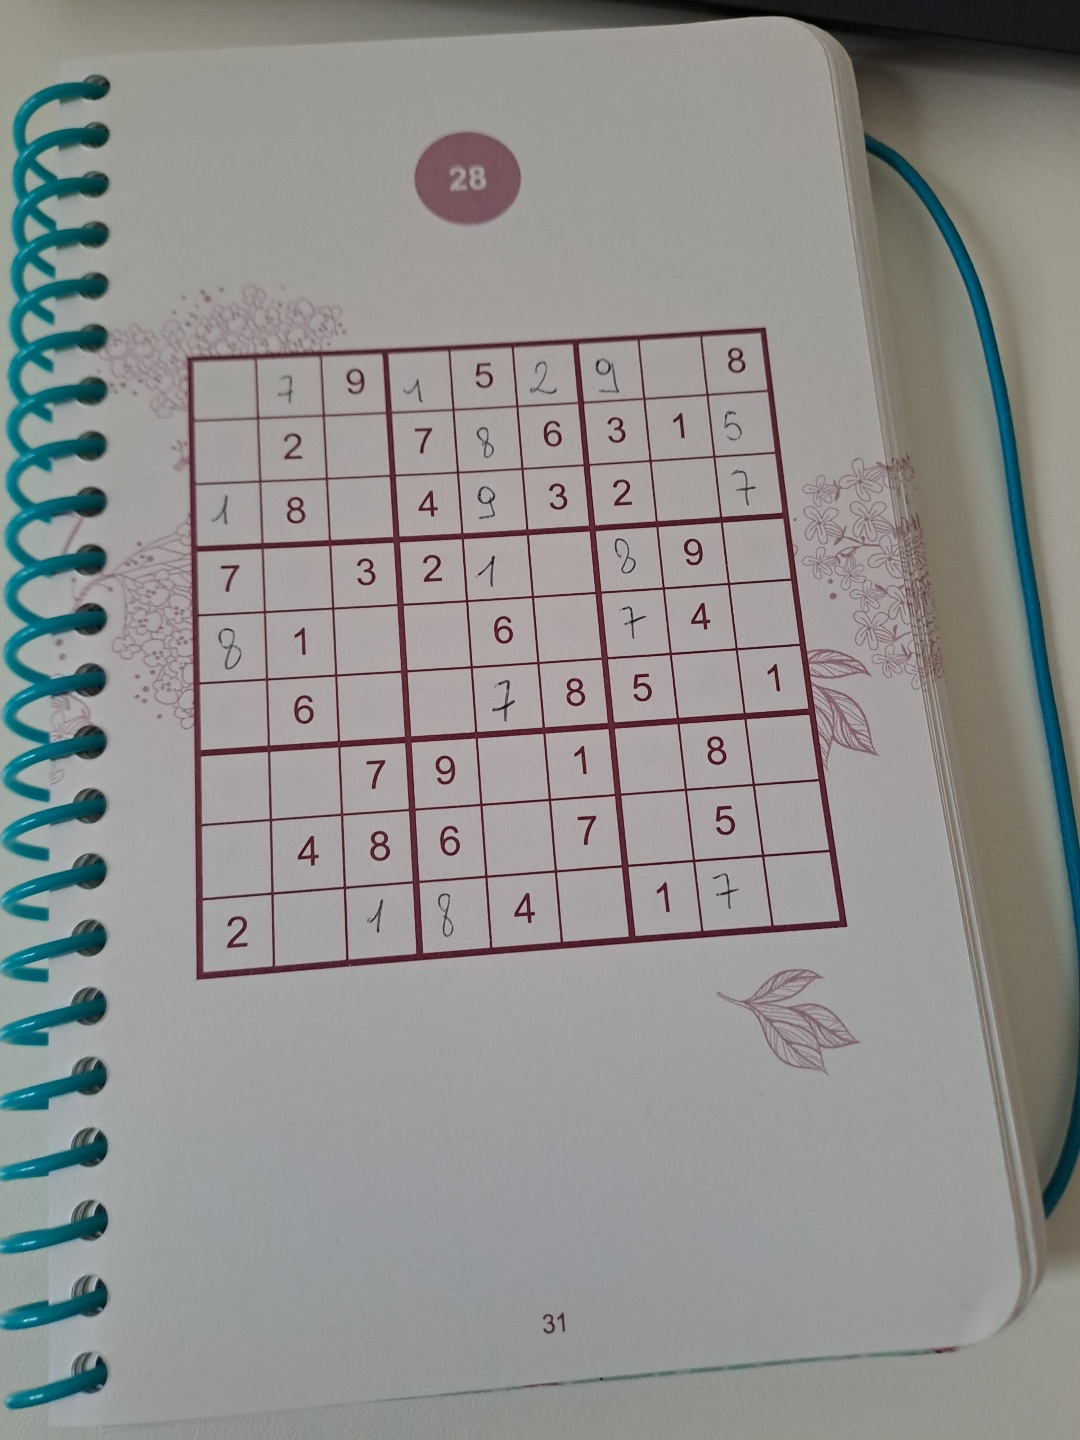 28
7 9 1 5 2 9 8
2 7 8 6 3 1 5
1 8 4 9 3 2 7
7 3 2 1 8 9
8 1 6 7 4
6 7 8 5 1
7 9 1 8
4 8 6 7 5
2 1 8 4 1 7
31